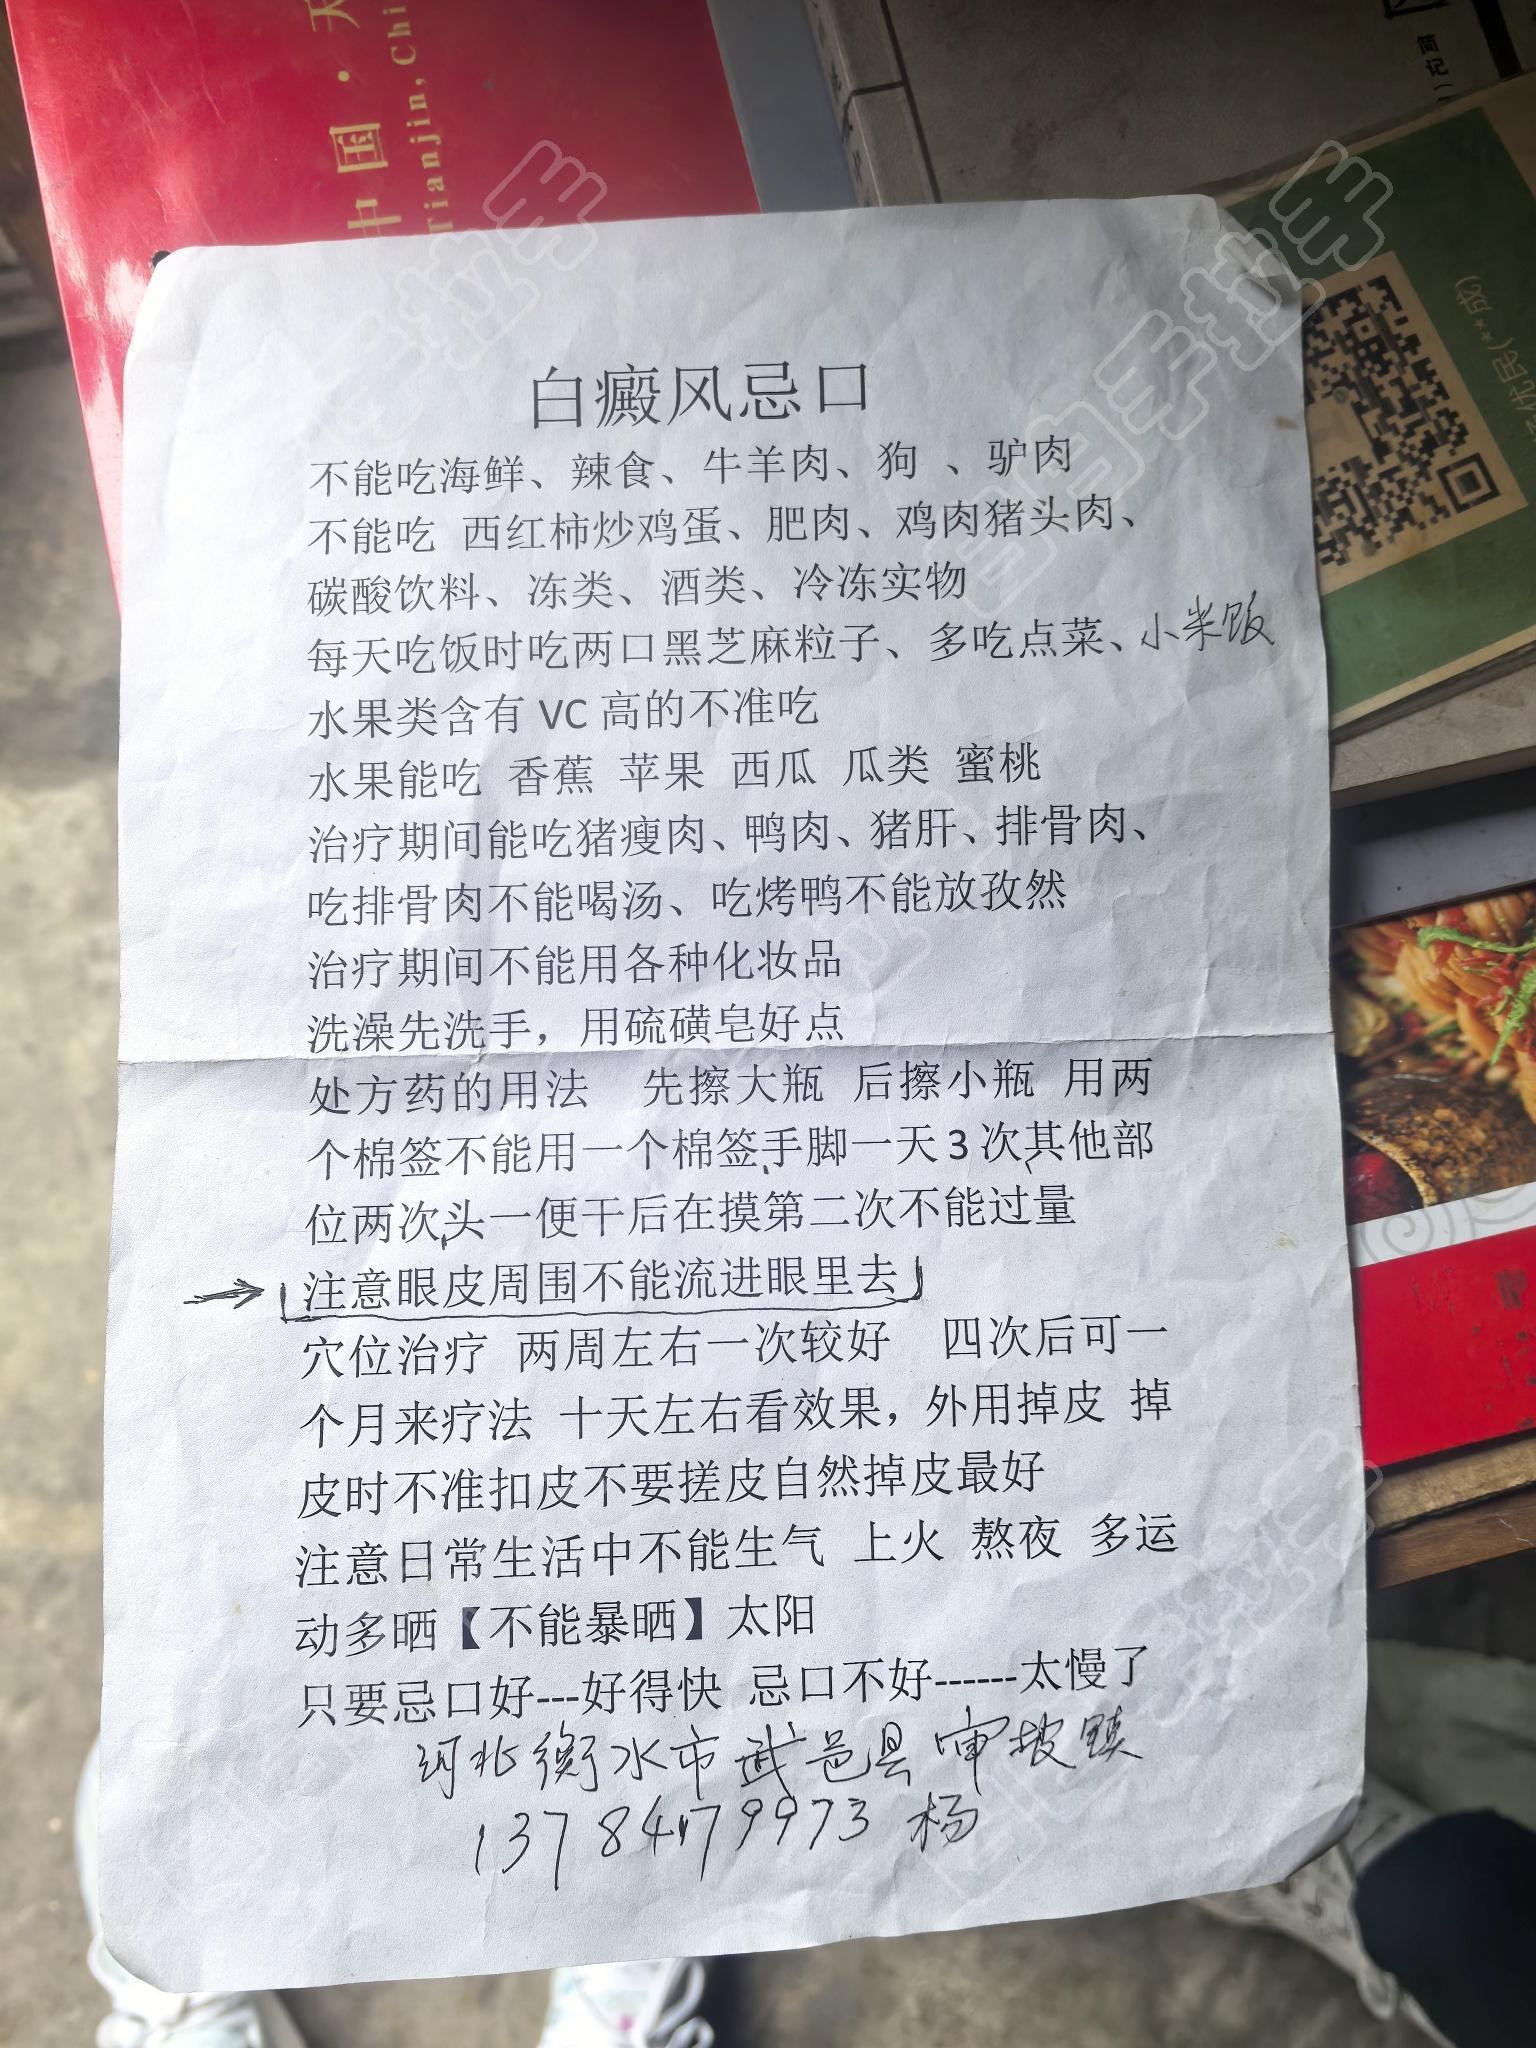 中国·天
Tianjin, Chi
简记(
白癜风忌口
不能吃海鲜、辣食、牛羊肉、狗 、驴肉
不能吃 西红柿炒鸡蛋、肥肉、鸡肉猪头肉、
碳酸饮料、冻类、酒类、冷冻实物
每天吃饭时吃两口黑芝麻粒子、多吃点菜、小米饭
水果类含有 VC 高的不准吃
水果能吃 香蕉 苹果 西瓜 瓜类 蜜桃
治疗期间能吃猪瘦肉、鸭肉、猪肝、排骨肉、
吃排骨肉不能喝汤、吃烤鸭不能放孜然
治疗期间不能用各种化妆品
洗澡先洗手，用硫磺皂好点
处方药的用法 先擦大瓶 后擦小瓶 用两
个棉签不能用一个棉签、手脚一天 3 次、其他部
位两次、头一便干后在摸第二次不能过量
注意眼皮周围不能流进眼里去
穴位治疗 两周左右一次较好 四次后可一
个月来疗法 十天左右看效果，外用掉皮 掉
皮时不准扣皮不要搓皮自然掉皮最好
注意日常生活中不能生气 上火 熬夜 多运
动多晒【不能暴晒】太阳
只要忌口好---好得快 忌口不好------太慢了
河北衡水市武邑县审坡镇
13784179973 杨